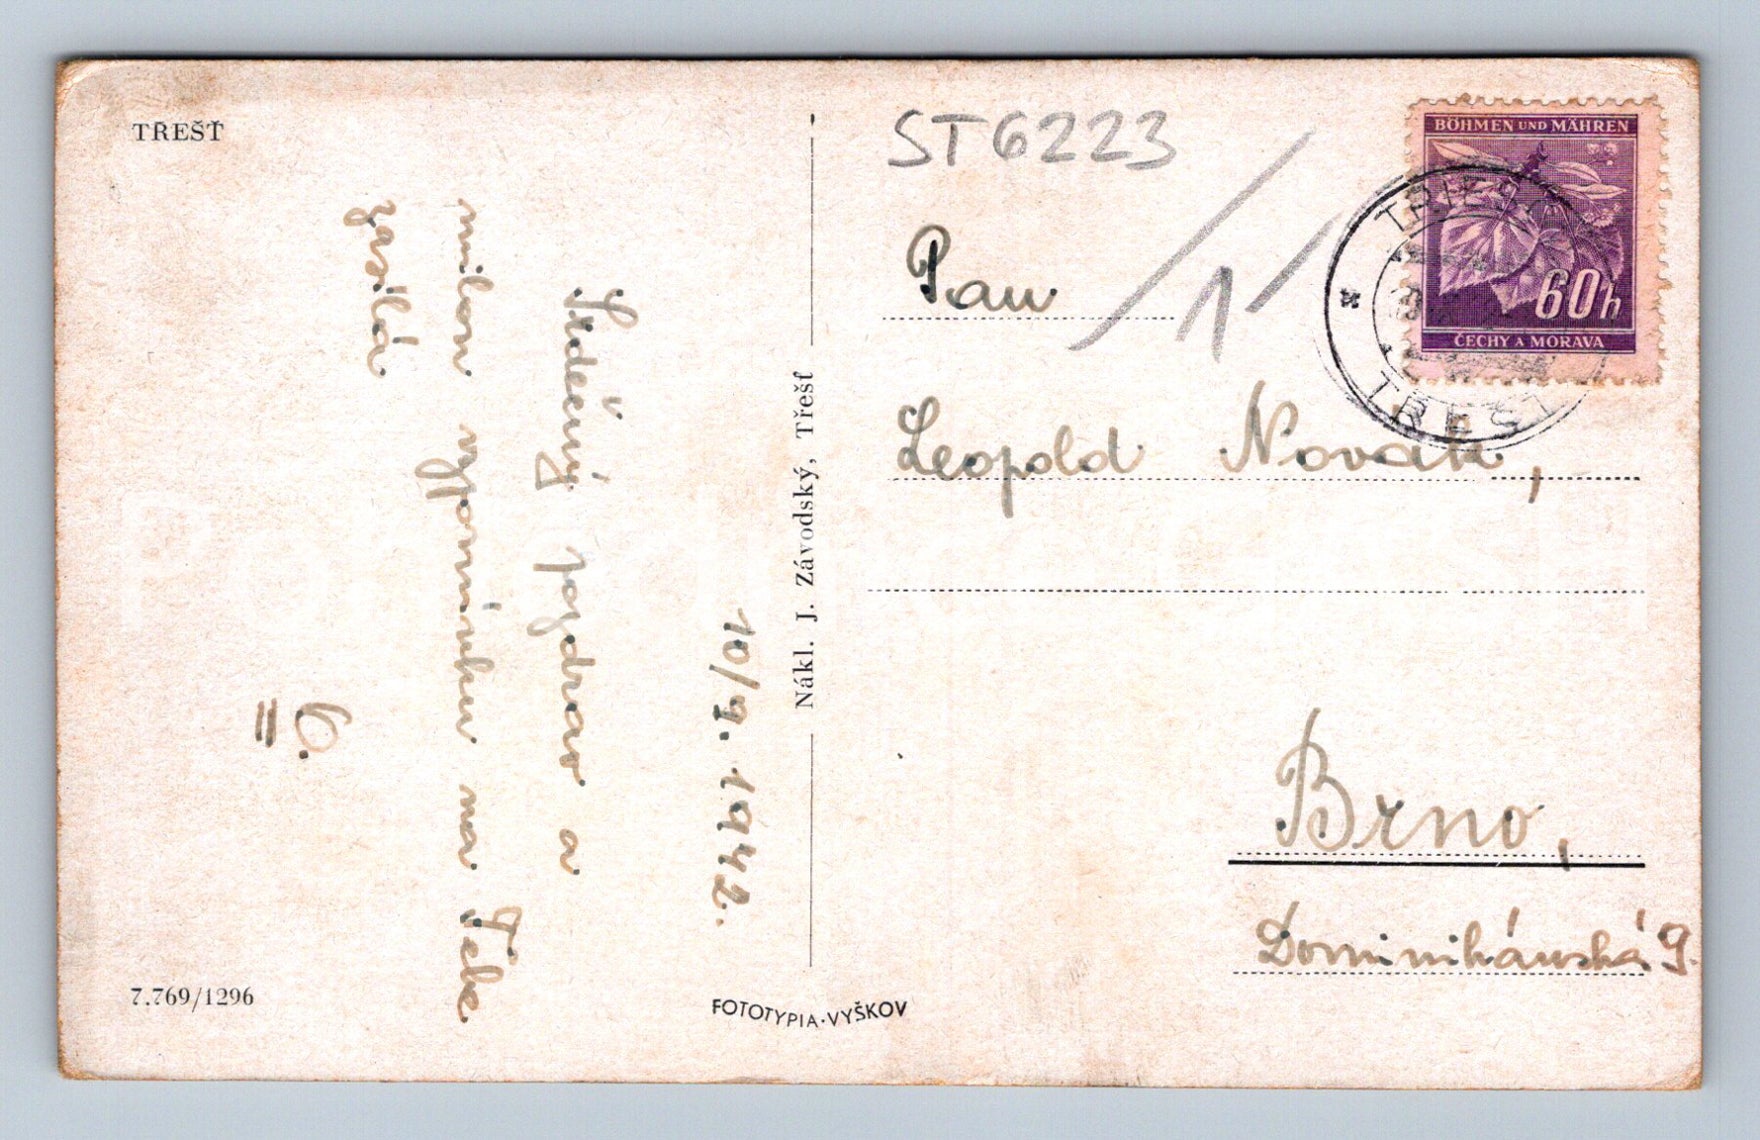 TŘEŠŤ
10/9. 1942.
Srdečný pozdrav a
milou vzpomínku na Tebe
zasílá
6.
7.769/1296
Nákl. J. Závodský, Třešť
FOTOTYPIA-VYŠKOV
ST6223
1
BÖHMEN UND MÄHREN
60h
ČECHY A MORAVA
TRIESCH
TŘEŠŤ
Pan
Leopold Novák,
Brno,
Dominikánská 9.